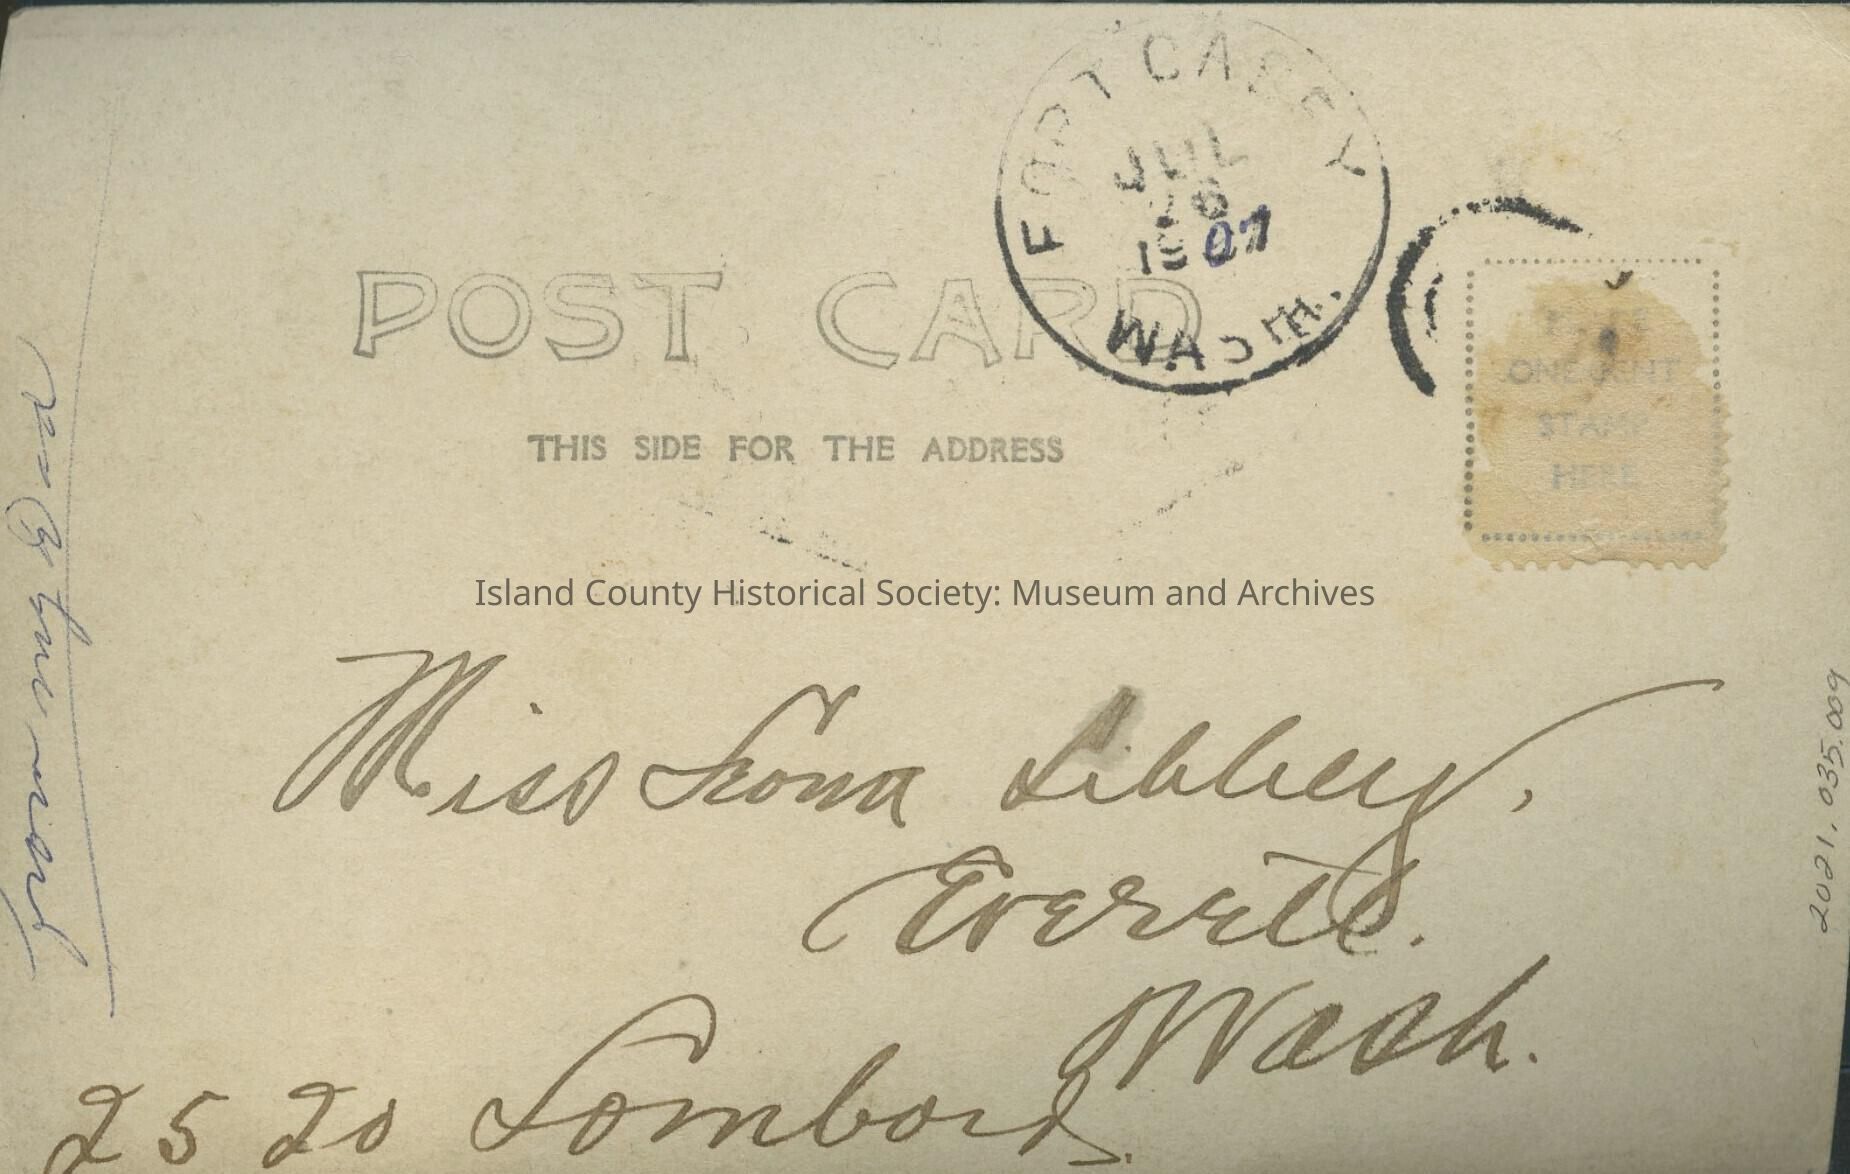 FORT CASEY
JUL
26
1907
WASH.
POST CARD
THIS SIDE FOR THE ADDRESS
ONE CENT
STAMP
HERE
Island County Historical Society: Museum and Archives
Miss Leona Libbey,
Everett.
Wash.
2520 Lombard.
2021.035.009